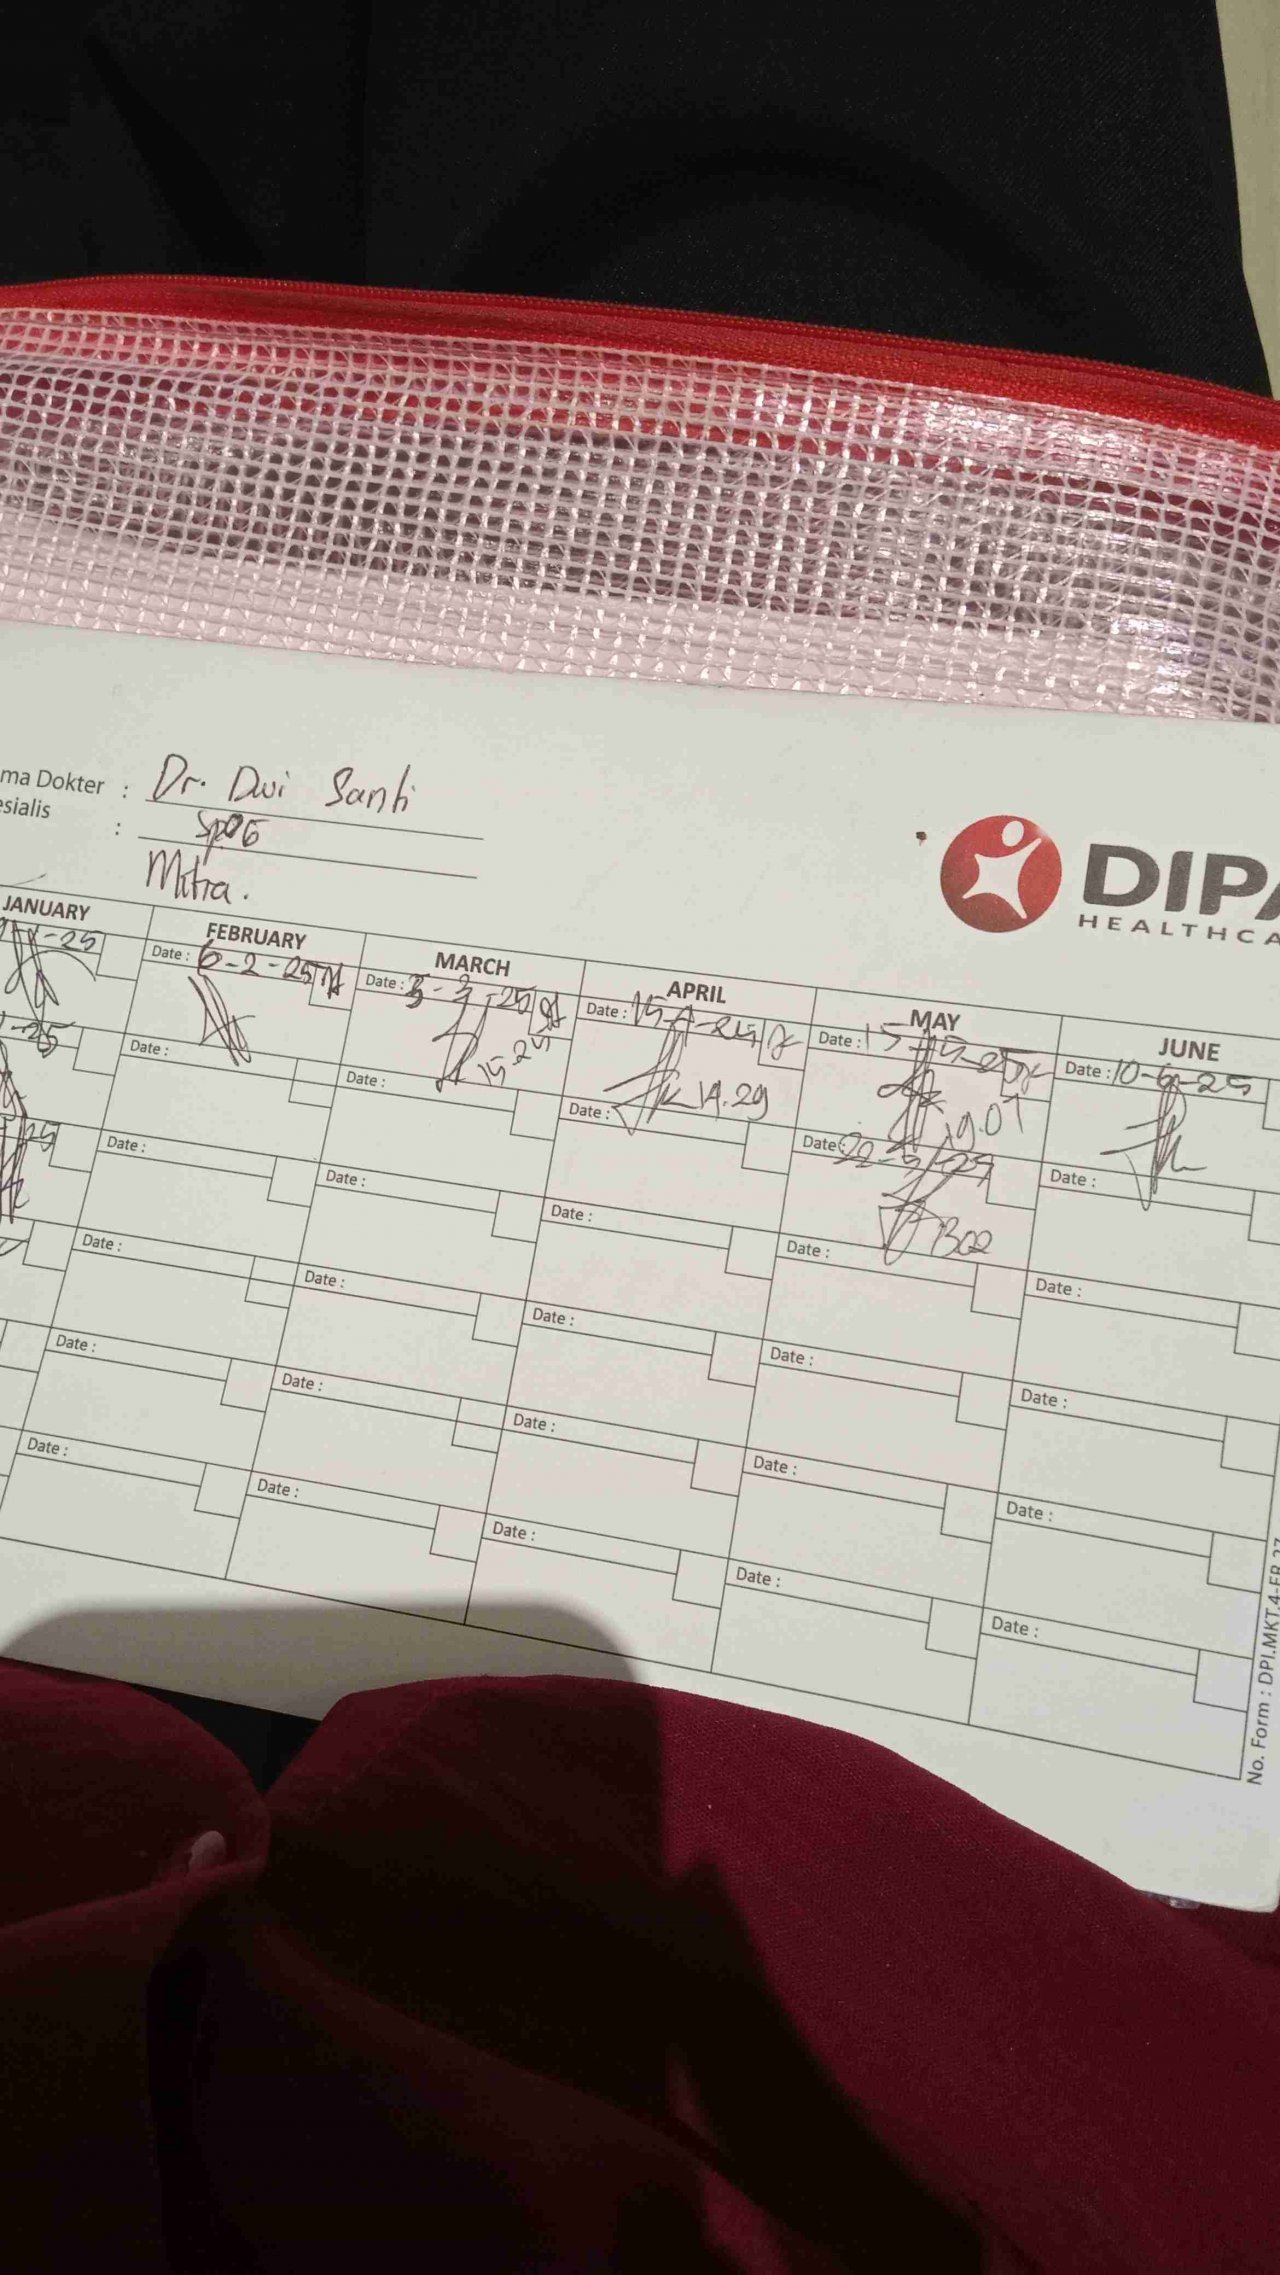 ma Dokter : Dr. Dwi Santi
esialis : SpOG
Mitra.
DIPA
HEALTHCA
JANUARY FEBRUARY MARCH APRIL MAY JUNE
-25 Date : 6-2-25 Date : 3-3-25 Date : 15-4-25 Date : 15-5-25 Date : 10-6-25
15-25 14.29 19.07
-25 Date : Date : Date : Date : 22-5-25 Date :
1302
25 Date : Date : Date : Date : Date :
Date : Date : Date : Date : Date :
Date : Date : Date : Date : Date :
Date : Date : Date : Date : Date :
No. Form : DPI.MKT.4-FR.27